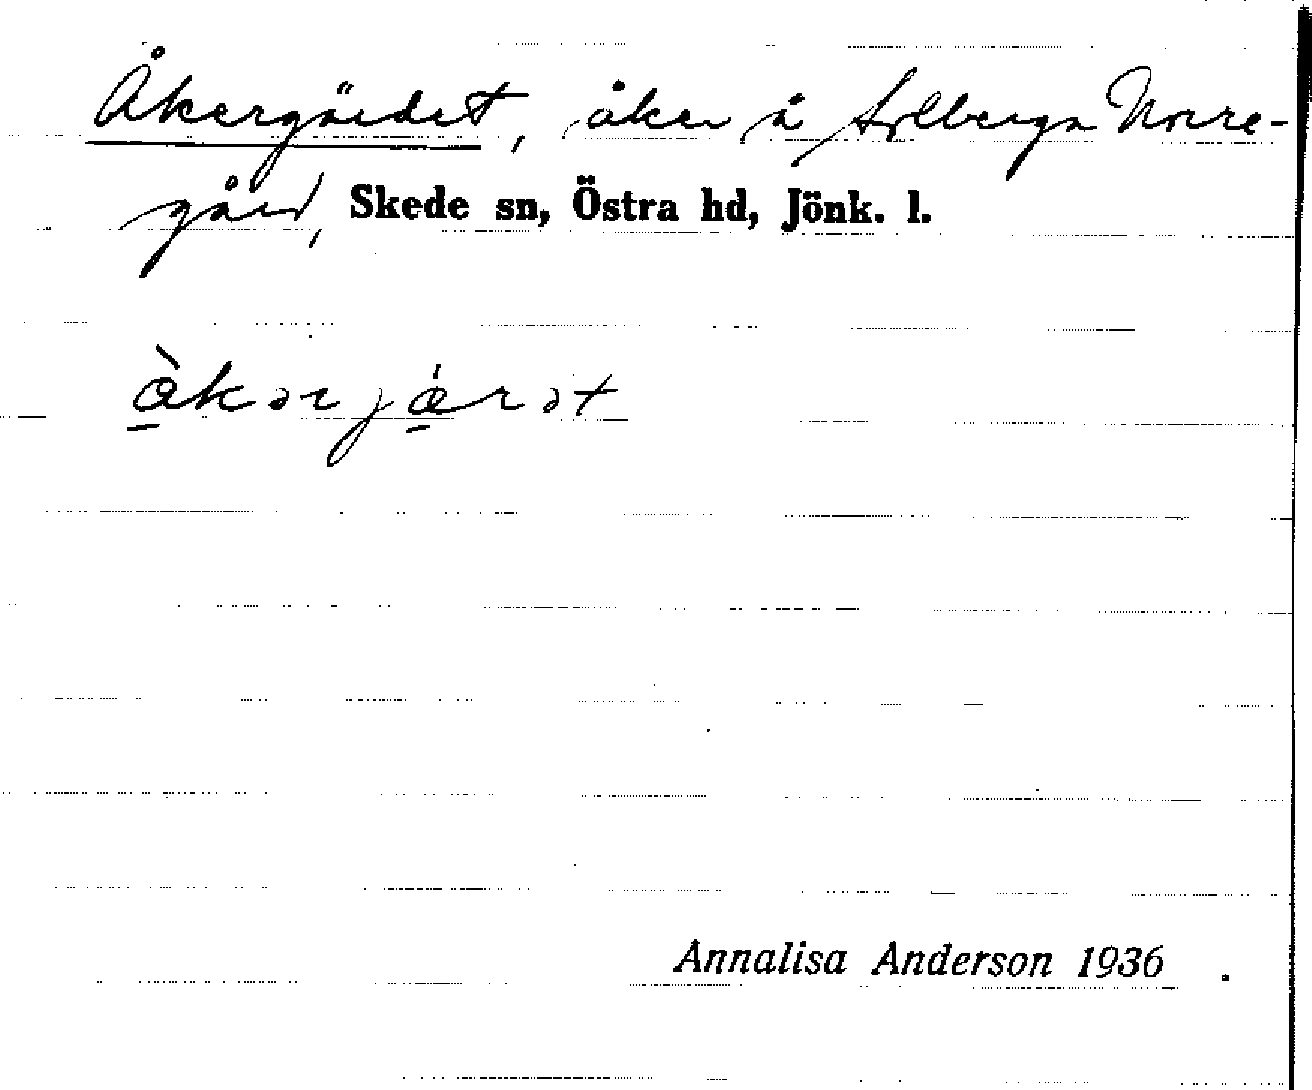 Åkergärdet, åker å Solberga Norre-
gård, Skede sn, Östra hd, Jönk. l.
àkərjárət
Annalisa Anderson 1936